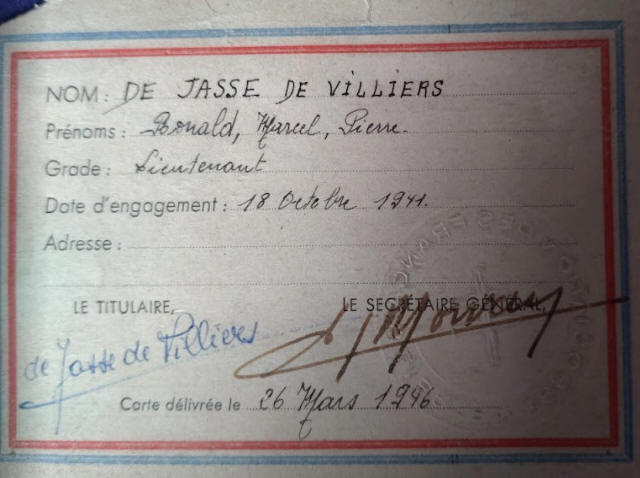 NOM: DE JASSE DE VILLIERS
Prénoms: Ronald, Marcel, Pierre.
Grade: Lieutenant
Date d'engagement: 18 Octobre 1941.
Adresse:
LE TITULAIRE, LE SECRÉTAIRE GÉNÉRAL,
de Jasse de Villiers
Carte délivrée le 26 Mars 1946